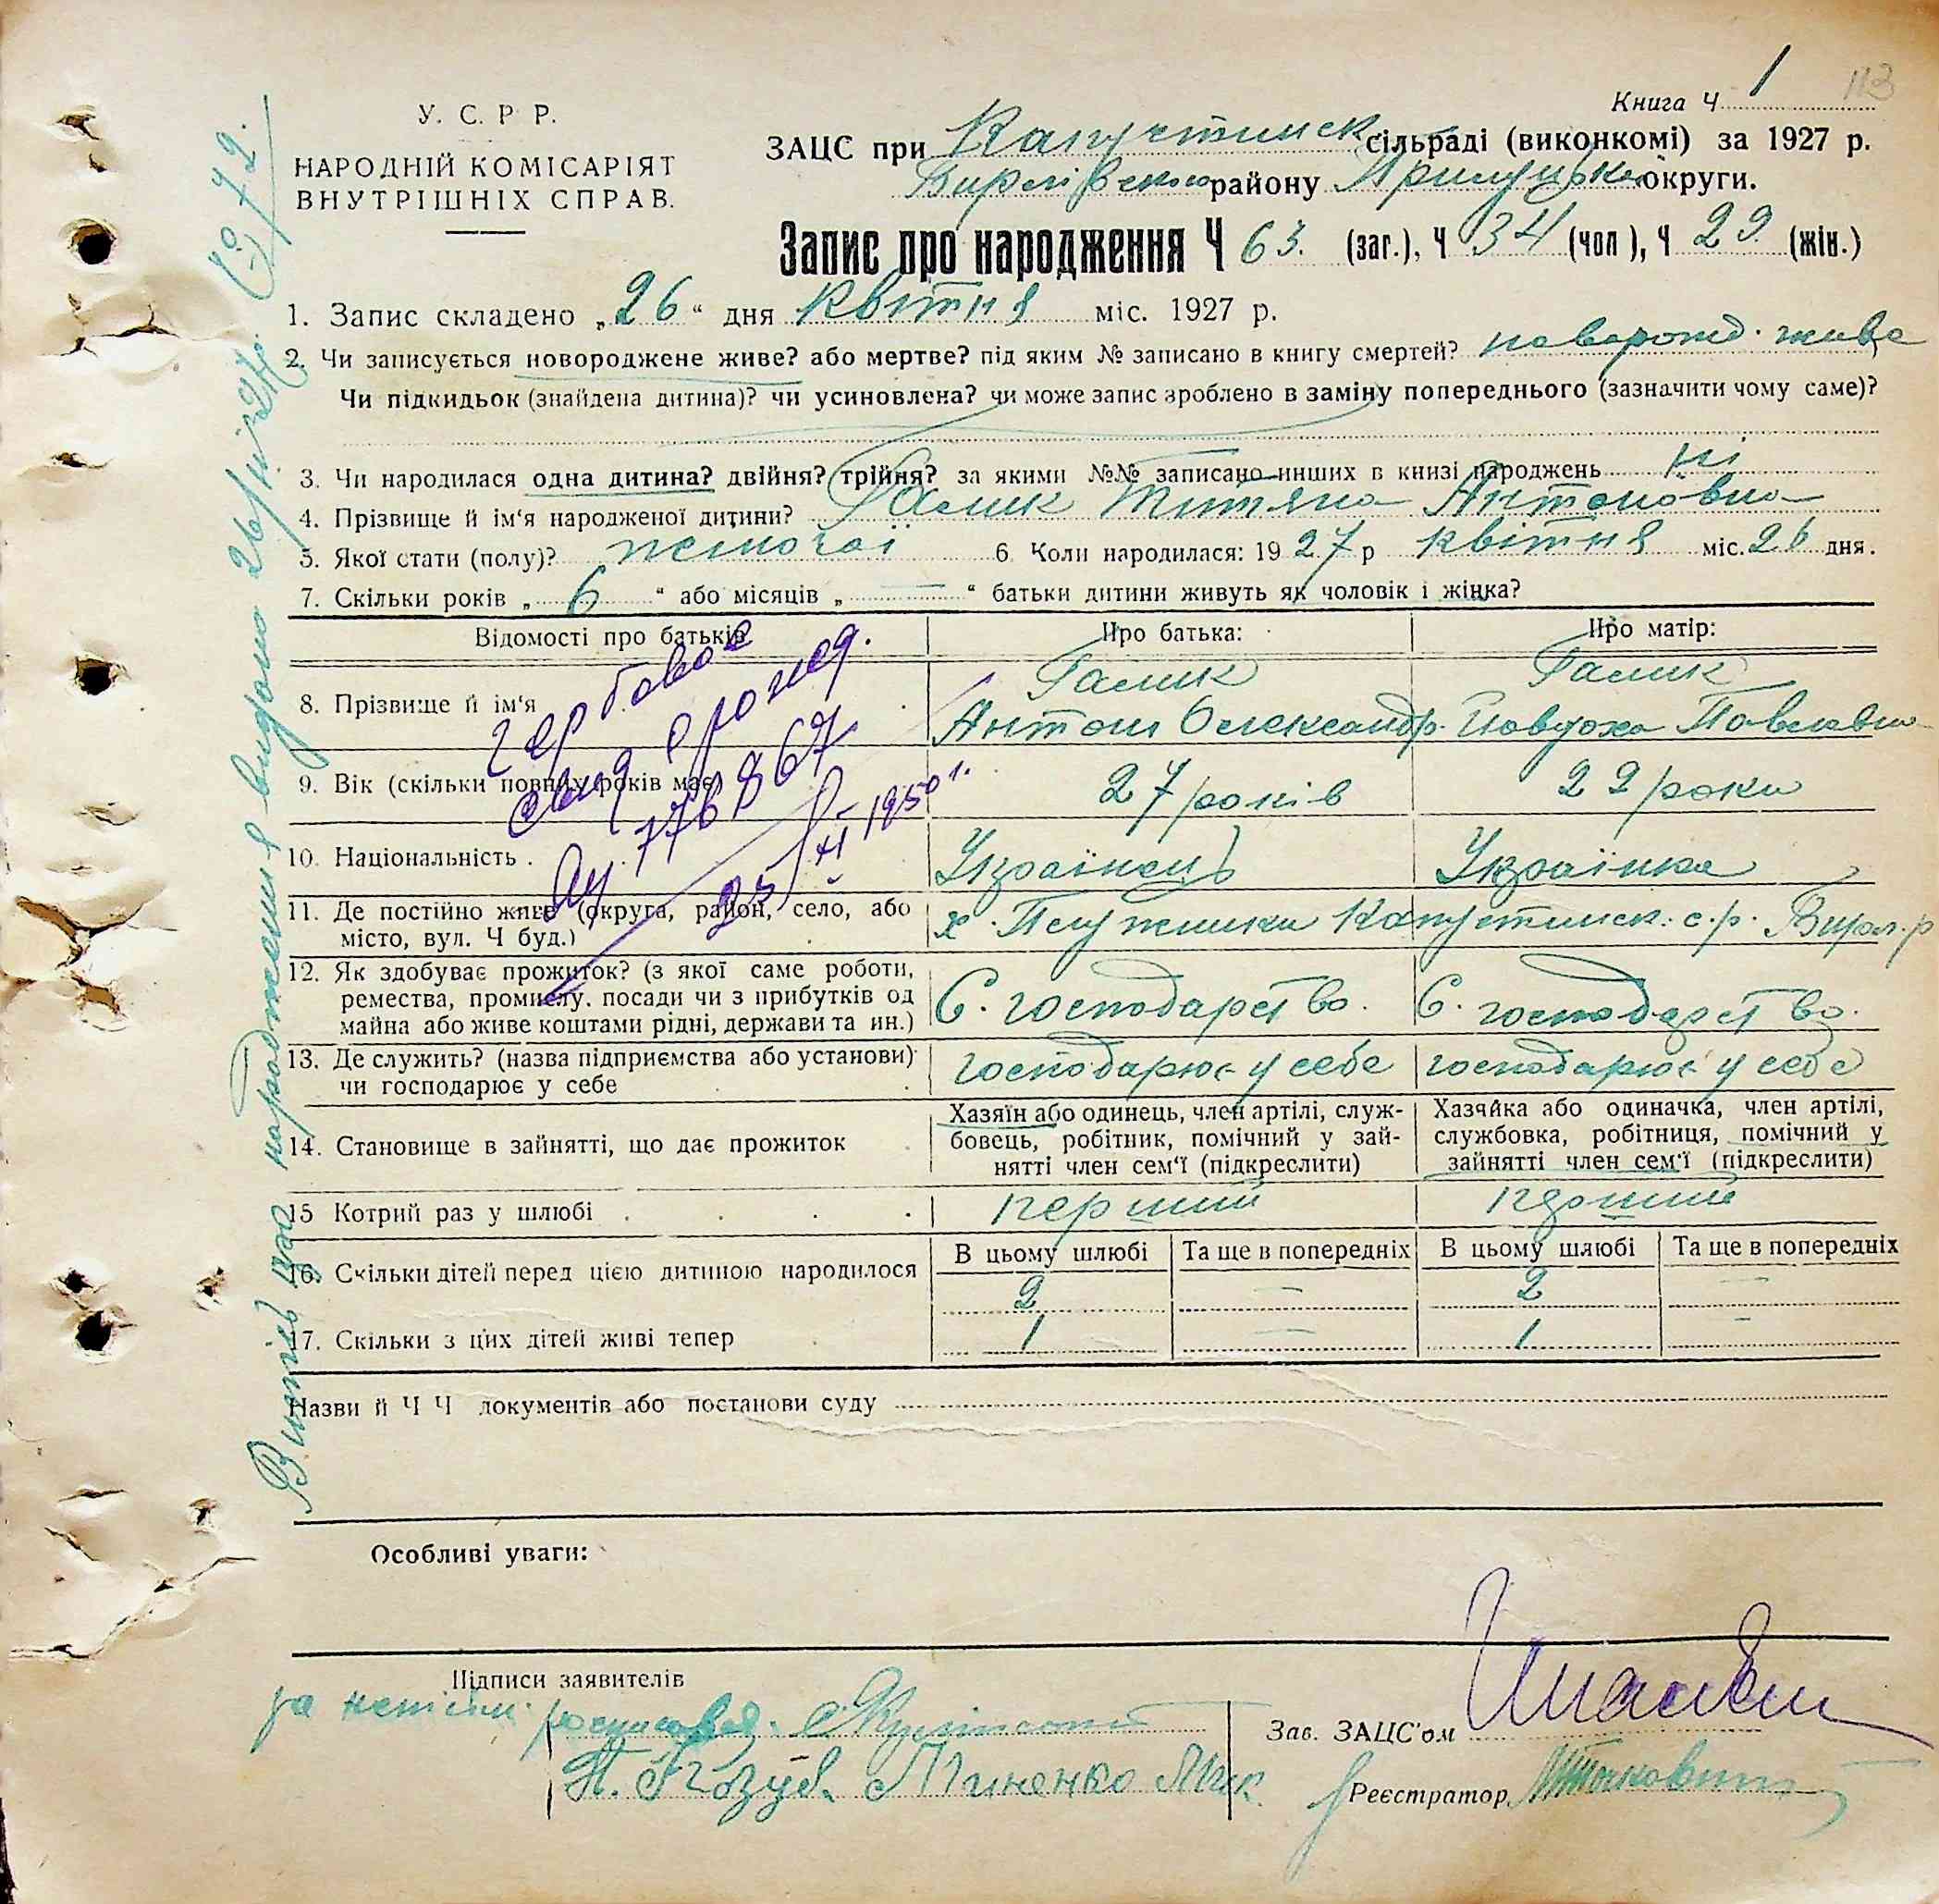 Книга Ч 1
113
У. С. Р Р.
НАРОДНІЙ КОМІСАРІЯТ
ВНУТРІШНІХ СПРАВ.
ЗАЦС при Капустинск сільраді (виконкомі) за 1927 р.
району Прилуцької округи.
Запис про народження Ч 63. (заг.), Ч 34 (чол), Ч 29. (жін.)
1. Запис складено „26“ дня квітня міс. 1927 р.
2. Чи записується новороджене живе? або мертве? під яким № записано в книгу смертей? жива
Чи підкидьок (знайдена дитина)? чи усиновлена? чи може запис зроблено в заміну попереднього (зазначити чому саме)?
3. Чи народилася одна дитина? двійня? трійня? за якими №№ записано инших в книзі народжень ні
4. Прізвище й ім‘я народженої дитини? Галик Титяна Антоновна
5. Якої стати (полу)? жіночої 6. Коли народилася: 1927 р квітня міс. 26 дня.
7. Скільки років „ 6 “ або місяців „ — “ батьки дитини живуть як чоловік і жінка?
Відомості про батьків Про батька: Про матір:
8. Прізвище й ім‘я Галик Антон Олександр. Галик Явдоха Павловна
9. Вік (скільки повних років має) 27 років 22 роки
10. Національність Українець Українка
11. Де постійно живе (округа, район, село, або
місто, вул. Ч буд.) х. Капустинск. с.р. р
12. Як здобуває прожиток? (з якої саме роботи,
ремества, промислу, посади чи з прибутків од
майна або живе коштами рідні, держави та ин.) С. господарство. С. господарство.
13. Де служить? (назва підприємства або установи)
чи господарює у себе господарює у себе господарює у себе
14. Становище в зайнятті, що дає прожиток
Хазяїн або одинець, член артілі, служ-
бовець, робітник, помічний у зай-
нятті член сем‘ї (підкреслити)
Хазяйка або одиначка, член артілі,
службовка, робітниця, помічний у
зайнятті член сем‘ї (підкреслити)
15 Котрий раз у шлюбі перший перший
В цьому шлюбі Та ще в попередніх В цьому шлюбі Та ще в попередніх
16. Скільки дітей перед цією дитиною народилося 2 — 2 —
17. Скільки з цих дітей живі тепер 1 — 1 —
Назви й Ч Ч документів або постанови суду
Особливі уваги:
Підписи заявителів
Зав. ЗАЦС'ом
Реєстратор
Витяг про народження видано
гербовое
свид о рожд.
776867
1950 г.